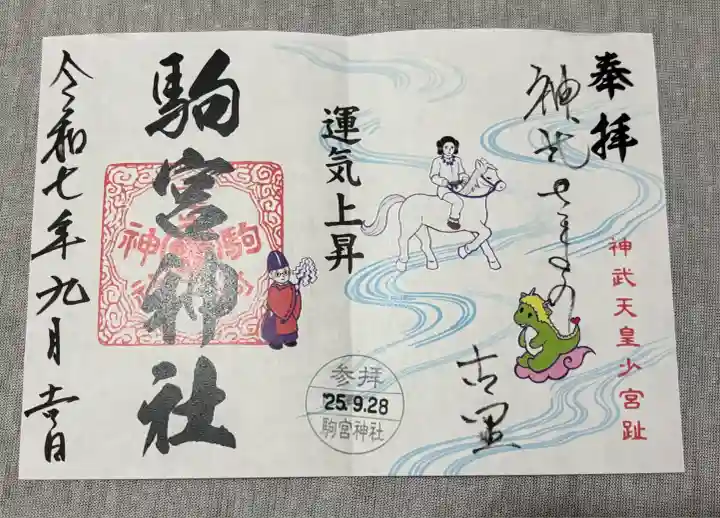 奉拝
神武さまの
古里
神武天皇少宮趾
運気上昇
参拝
'25.9.28
駒宮神社
駒宮神社
駒
神
令和七年九月吉日